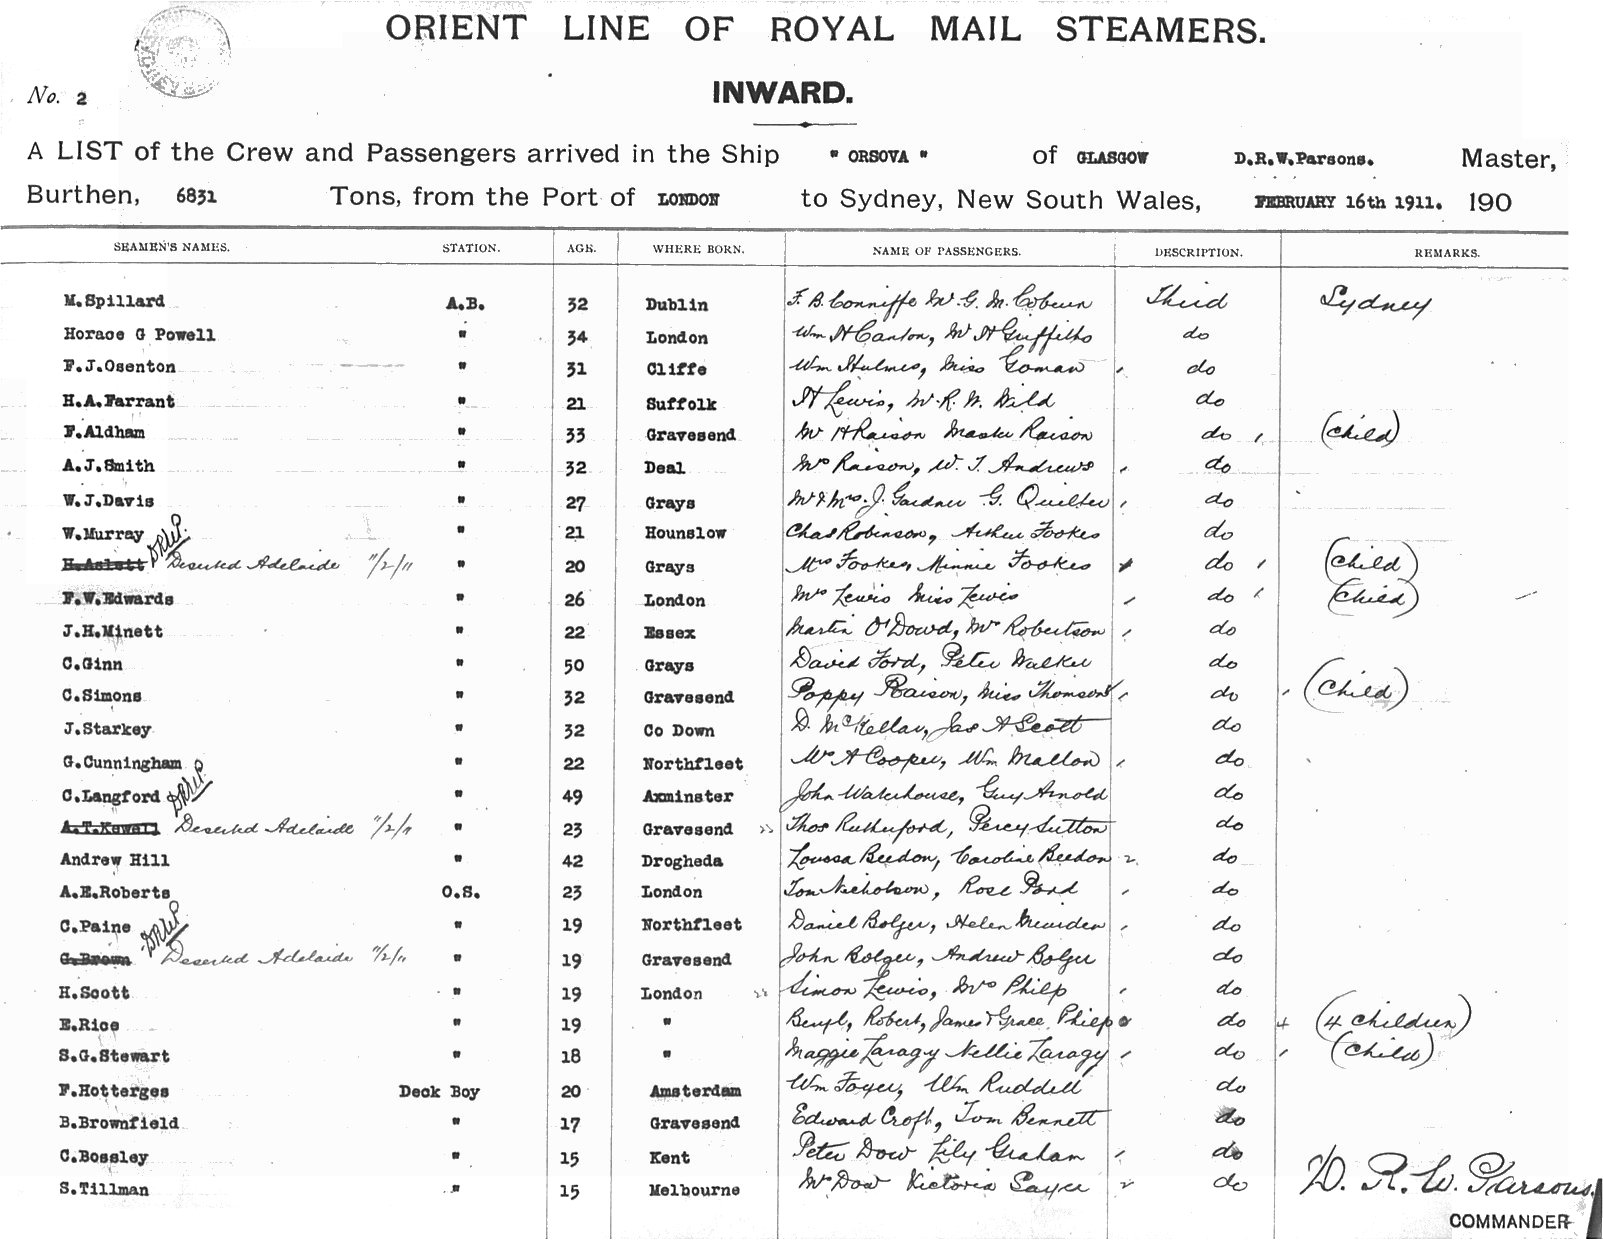 ORIENT LINE OF ROYAL MAIL STEAMERS.
No. 2
INWARD.
A LIST of the Crew and Passengers arrived in the Ship " ORSOVA " of GLASGOW D.R.W.Parsons. Master,
Burthen, 6831 Tons, from the Port of LONDON to Sydney, New South Wales, FEBRUARY 16th 1911. 190
SEAMEN'S NAMES. STATION. AGE. WHERE BORN. NAME OF PASSENGERS. DESCRIPTION. REMARKS.
M.Spillard A.B. 32 Dublin F. B. Conniffe Mr G. M. Coburn Third Sydney
Horace G Powell " 34 London Wm H Canton, Mr H Griffiths do
F.J.Osenton " 31 Cliffe Wm Hulmes, Miss Goman do
H.A.Farrant " 21 Suffolk H Lewis, Mr R. W. Wild do
F.Aldham " 33 Gravesend Mr H Raison Master Raison do 1 (Child)
A.J.Smith " 32 Deal Mrs Raison, W. T. Andrews do
W.J.Davis " 27 Grays Mr & Mrs. J. Gardner G. Quilter do
W.Murray " 21 Hounslow Chas Robinson, Arthur Fookes do
H.Aslett DRWP. Deserted Adelaide 11/2/11 " 20 Grays Mrs Fookes, Minnie Fookes do 1 (Child)
F.W.Edwards " 26 London Mrs Lewis Miss Lewis do 1 (Child)
J.H.Minett " 22 Essex Martin O'Dowd, Mrs Robertson do
C.Ginn " 50 Grays David Ford, Peter Walker do
C.Simons " 32 Gravesend Poppy Raison, Miss Thomson do 1 (Child)
J.Starkey " 32 Co Down D. McKellar, Jas A Scott do
G.Cunningham " 22 Northfleet A Cooper, Wm Mallon do
C.Langford DRWP. " 49 Axminster John Waterhouse, Guy Arnold do
A.T.Kewell Deserted Adelaide 11/2/11 " 23 Gravesend Thos Rutherford, Percy Sutton do
Andrew Hill " 42 Drogheda Louesa Beedon, Caroline Beedon 2 do
A.E.Roberts O.S. 23 London Tom Nicholson, Rose Pond do
C.Paine DRWP " 19 Northfleet Daniel Bolger, Helen do
G.Brown Deserted Adelaide 11/2/11 " 19 Gravesend John Bolger, Andrew Bolger do
H.Scott " 19 London Simon Lewis, Mrs Philp do
E.Rice " 19 " Beryl, Robert, James & Grace Philp do 4 (4 Children)
S.G.Stewart " 18 " Maggie Zaragy Nellie Zaragy do 1 (Child)
F.Hotterges Deck Boy 20 Amsterdam Wm Foyer, Wm Ruddell do
B.Brownfield " 17 Gravesend Edward Croft, Tom Bennett do
C.Bossley " 15 Kent Peter Dow Lily Graham do
S.Tillman " 15 Melbourne Mr Dow Victoria Sayer 2 do D. R. W. Parsons.
COMMANDER